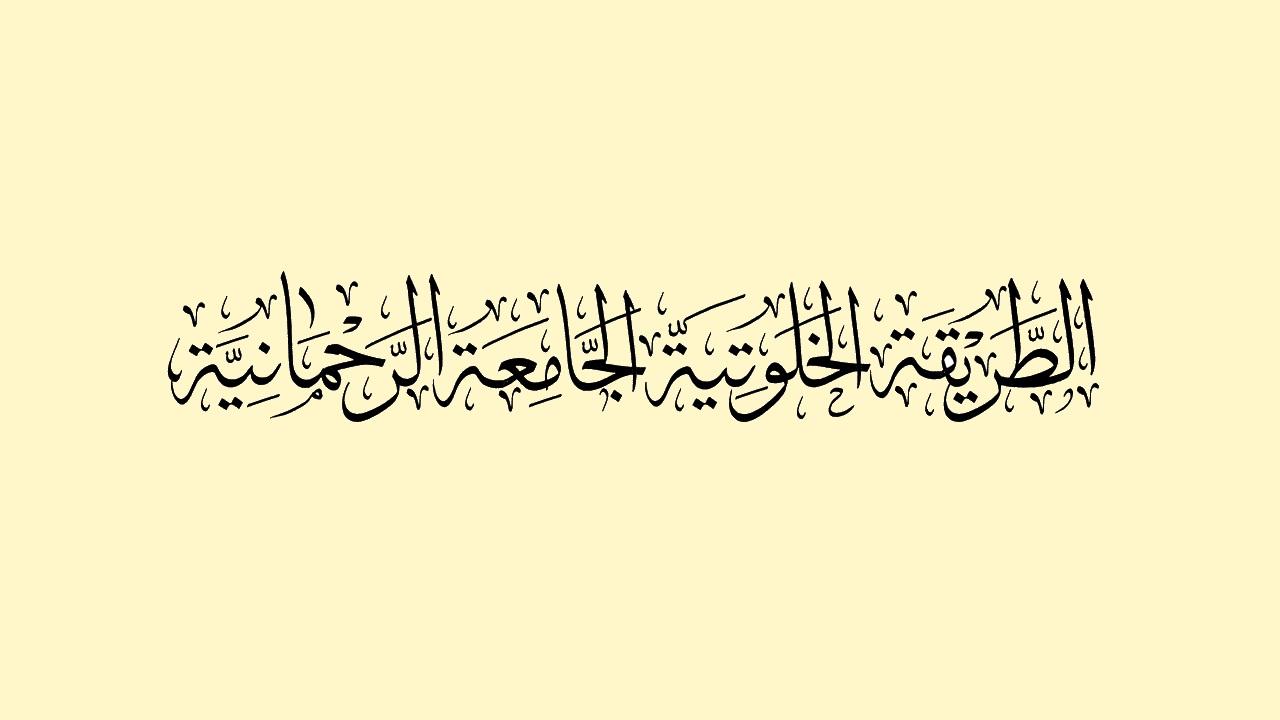 الطَّرِيقَة الخَلوَتِيَّة الجَّامِعَة الرَّحْمَانِيَّة